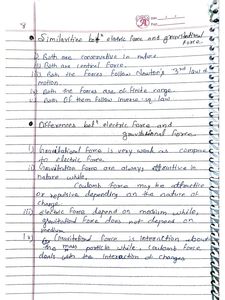 Similarities betn electric Force and gravitational
Force
i) Both are conservative in nature
ii) Both are central Force.
iii) Both the Forces Follow Newton's 3rd law of
motion.
iv) Both the Forces are of finite range.
v) Both of them Follow inverse sq. law
Differences betn electric Force and
gravitational Force
i) Gravitational Force is very weak as compare
to electric Force
ii) Gravitation Force are always attractive in
nature while,
Coulomb Force may be attractive
or repulsive depending on the nature of
charge.
iii) electric Force depend on medium while,
gravitational Force does not depend on
medium
iv) Gravitational Force is interaction about
the mass particle while, Coulomb Force
deals with the Interaction of charges